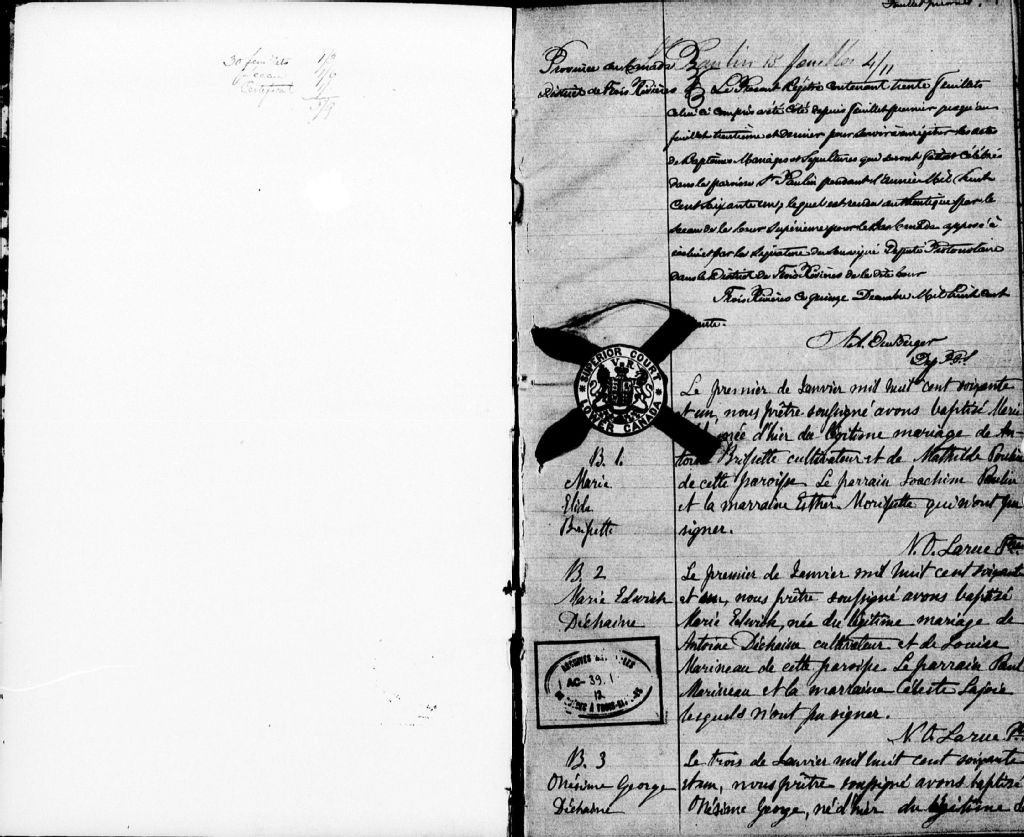 30 feuillets 1/3
Sceau 1/9
Certificat
Feuillet premier. 1
St Paulin 15 feuilles 4/11
Province du Canada
District de Trois Rivières
Le Présent Régistre contenant trente feuillets
celui ci compris a été coté depuis feuillet premier jusqu'au
feuillet trentième et dernier pour servir à enrégistrer les actes
de Baptêmes Mariages et Sépultures qui seront faits et célébrés
dans la paroisse St Paulin pendant l'Année Mil huit
Cent Soixante un, lequel est rendu authentique par le
sceau de la Cour Supérieure pour le Bas Canada apposé à
icelui et par la Signature du Soussigné Député Protonotaire
dans le District de Trois Rivières de la dite Cour
Trois Rivières Ce quinze Décembre Mil huit cent
Dep. P.C.S
SUPERIOR COURT
V R
LOWER CANADA
B. 1.
Marie
Elida
Brissette
Le premier de Janvier mil huit cent soixante
et un, nous prêtre soussigné avons baptisé Marie
née d'hier du légitime mariage de An-
toine Brissette cultivateur et de Mathilde Poulin
de cette paroisse Le parrain Joachim Paulin
et la marraine Esther Morissette qui n'ont pu
signer.
N. O. Larue Ptre
B. 2
Marie Edwich
Déchaine
Le premier de Janvier mil huit cent soixante
et un, nous prêtre soussigné avons baptisé
Marie Edwich, née du légitime mariage de
Antoine Déchaine cultivateur et de Louise
Marineau de cette paroisse Le parrain Paul
Marineau et la marraine Céleste Lajoie
lesquels n'ont pu signer.
N. O. Larue Ptre
ARCHIVES
AC- 39.1
13
B. 3
Onésime George
Déchaine
Le trois de Janvier mil huit cent soixante
et un, nous prêtre soussigné avons baptisé
Onésime George, né d'hier du légitime